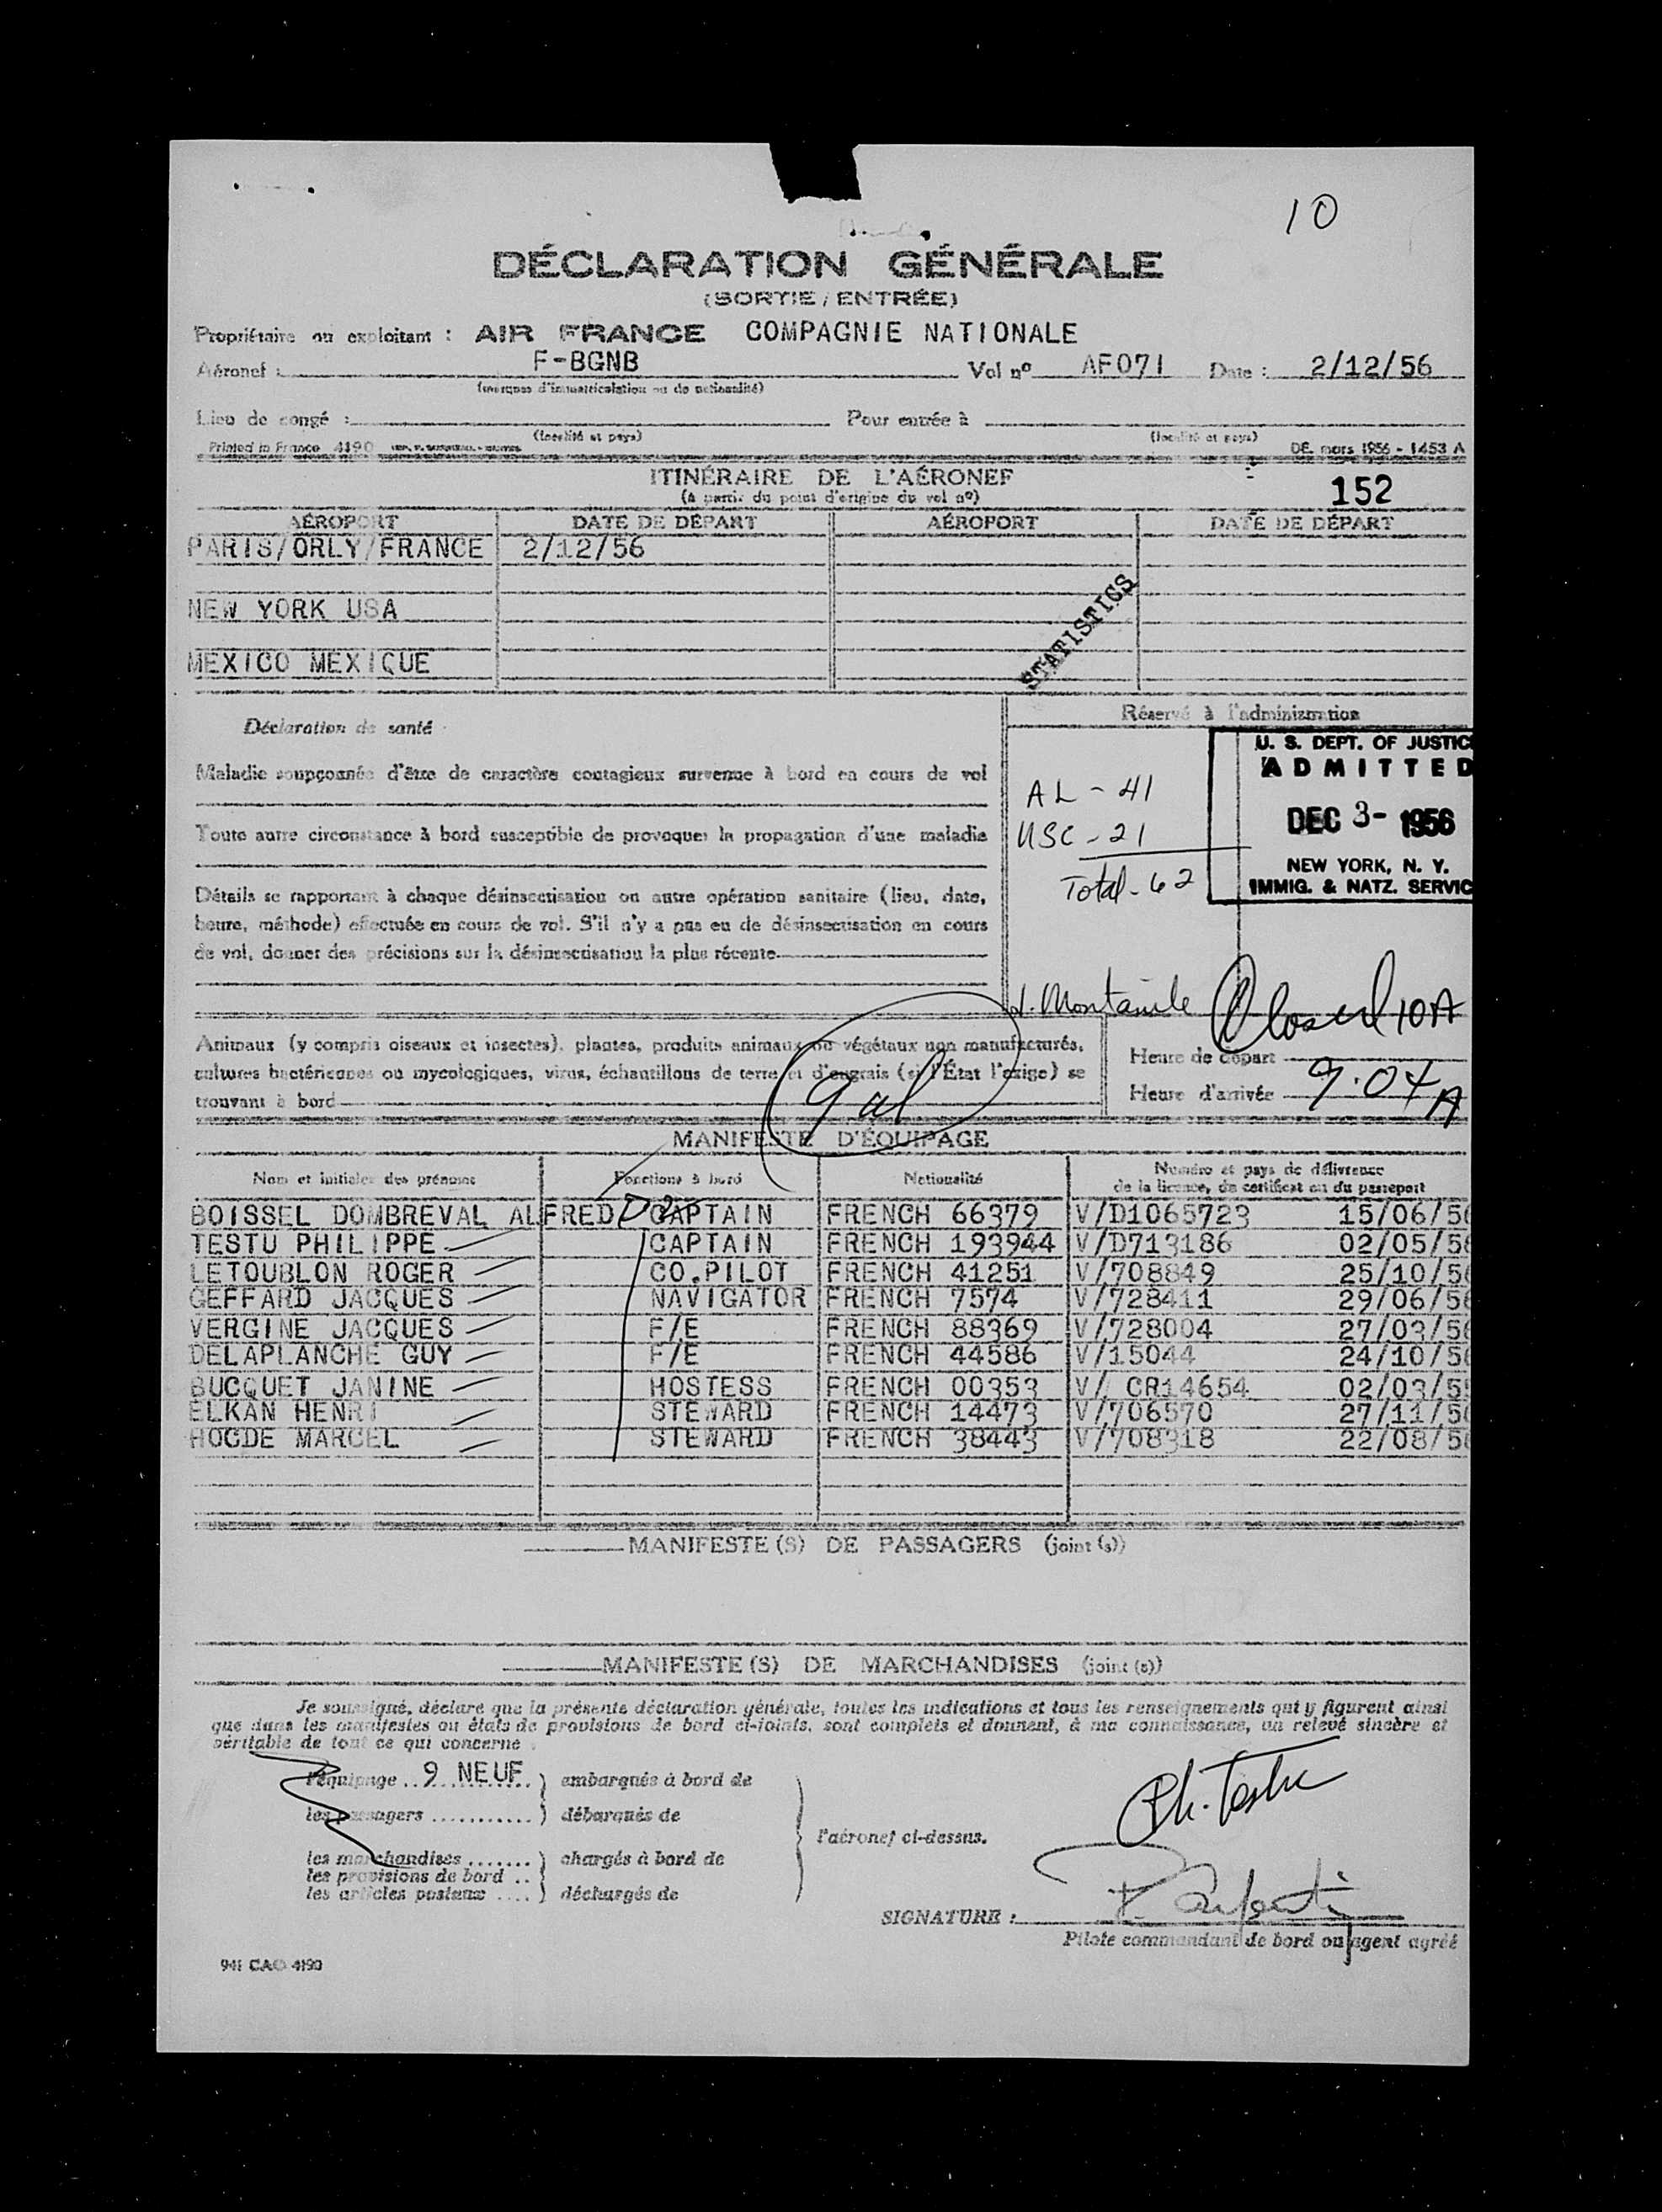 10
DÉCLARATION GÉNÉRALE
(SORTIE / ENTRÉE)
Propriétaire ou exploitant : AIR FRANCE COMPAGNIE NATIONALE
Aéronef : F-BGNB Vol nº AF071 Date : 2/12/56
(marques d'immatriculation ou de nationalité)
Lieu de congé : Pour entrée à
(localité et pays) (localité et pays)
Printed in France 4190 DE. mars 1956 - 1453 A
ITINÉRAIRE DE L'AÉRONEF
(à partir du point d'origine du vol nº) 152
AÉROPORT DATE DE DÉPART AÉROPORT DATE DE DÉPART
PARIS/ORLY/FRANCE 2/12/56
NEW YORK USA
STATISTICS
MEXICO MEXIQUE
Réservé à l'administration
Déclaration de santé
U. S. DEPT. OF JUSTIC
ADMITTED
DEC 3- 1956
NEW YORK, N. Y.
IMMIG. & NATZ. SERVIC
Maladie soupçonnée d'être de caractère contagieux survenue à bord en cours de vol
AL - 41
USC - 21
Total - 62
Toute autre circonstance à bord susceptible de provoquer la propagation d'une maladie
Détails se rapportant à chaque désinsectisation ou autre opération sanitaire (lieu, date,
heure, méthode) effectuée en cours de vol. S'il n'y a pas eu de désinsectisation en cours
de vol, donner des précisions sur la désinsectisation la plus récente
Closed 10A
Animaux (y compris oiseaux et insectes), plantes, produits animaux ou végétaux non manufacturés,
cultures bactériennes ou mycologiques, virus, échantillons de terre et d'engrais (si l'État l'exige) se
trouvant à bord
Heure de départ
Heure d'arrivée 9.04 A
MANIFESTE D'ÉQUIPAGE
Nom et initiales des prénoms Fonctions à bord Nationalité Numéro et pays de délivrance
de la licence, du certificat ou du passeport
BOISSEL DOMBREVAL ALFRED D2 CAPTAIN FRENCH 66379 V/D1065723 15/06/56
TESTU PHILIPPE CAPTAIN FRENCH 193944 V/D713186 02/05/56
LETOUBLON ROGER CO.PILOT FRENCH 41251 V/708849 25/10/56
GEFFARD JACQUES NAVIGATOR FRENCH 7574 V/728411 29/06/56
VERGINE JACQUES F/E FRENCH 88369 V/728004 27/03/56
DELAPLANCHE GUY F/E FRENCH 44586 V/15044 24/10/56
BUCQUET JANINE HOSTESS FRENCH 00353 V/ CR14654 02/03/5
ELKAN HENRI STEWARD FRENCH 14473 V/706570 27/11/56
HOGDE MARCEL STEWARD FRENCH 38443 V/708318 22/08/56
MANIFESTE (S) DE PASSAGERS (joint (s))
MANIFESTE (S) DE MARCHANDISES (joint (s))
Je soussigné, déclare que la présente déclaration générale, toutes les indications et tous les renseignements qui y figurent ainsi
que dans les manifestes ou états de provisions de bord ci-joints, sont complets et donnent, à ma connaissance, un relevé sincère et
véritable de tout ce qui concerne
l'équipage .. 9 NEUF ) embarqués à bord de
les passagers ............ ) débarqués de
l'aéronef ci-dessus.
les marchandises ....... ) chargés à bord de
les provisions de bord ..
les articles postaux .... ) déchargés de
Ph. Testu
SIGNATURE :
Pilote commandant de bord ou agent agréé
941 CAO 4190